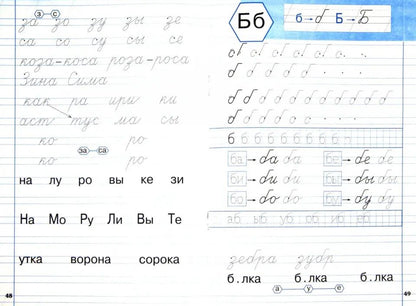 з с
за зо зу зы зе
са со су сы се
коза-коса роза-роса
Зина Сима
как ра ири ки
аст тус ма сы
ко ро
за са
ко ро
на лу ро вы ке зи
На Мо Ру Ли Вы Те
утка ворона сорока
48
Бб б→б Б→Б
б б б б б б б б б б б
ба→ба ба бе→бе бе
би→би би бы→бы бы
бо→бо бо бу→бу бу
аб ыб уб об иб еб
зебра зубр
б.лка б.лка б.лка
а у е
49